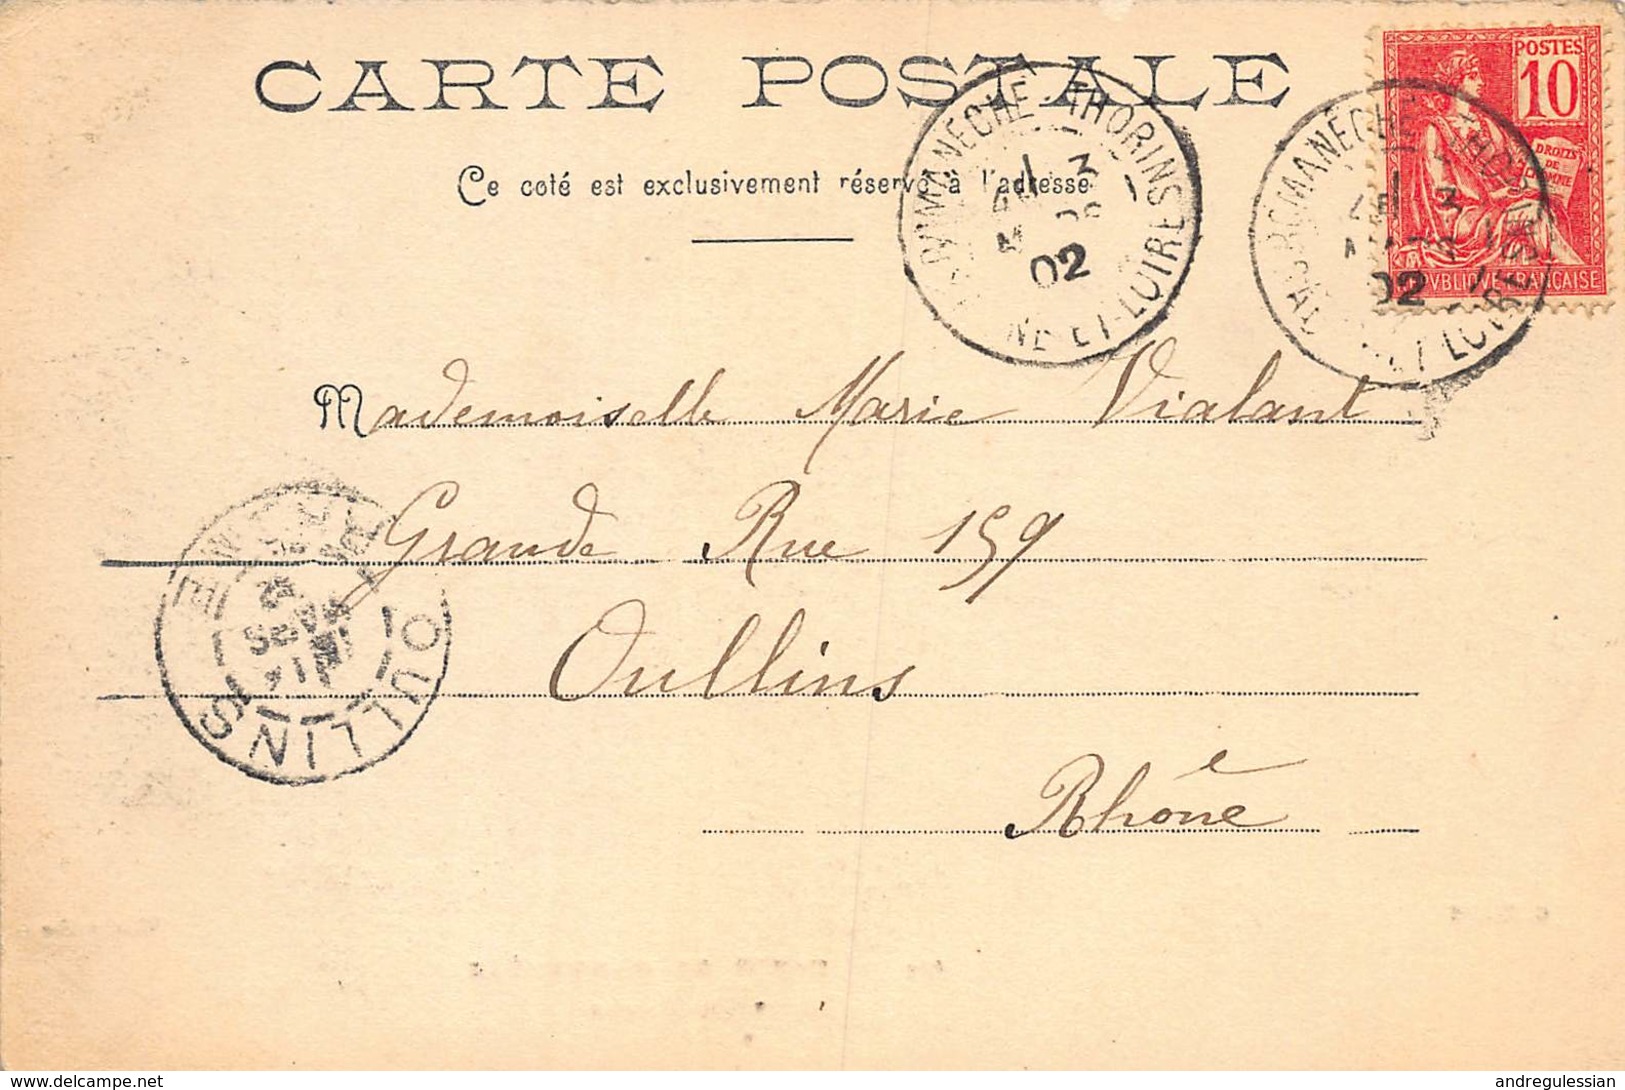 CARTE POSTALE
Ce coté est exclusivement réservé à l'adresse
POSTES
10
DROITS
DE
RÉPUBLIQUE FRANÇAISE
ROMANÈCHE-THORINS
SAÔNE-ET-LOIRE
02
ROMANÈCHE-THORINS
ET-LOIRE
02
Mademoiselle Marie Vialant
Grande Rue 159
Oullins
Rhône
OULLINS
www.delcampe.net
andregulessian